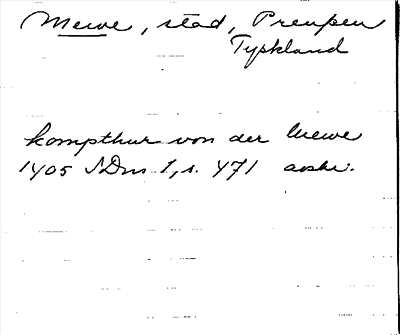 Mewe, stad, Preuþen
Tyskland
kompthur von der Mewe
1405 SDns 1, s. 471 avskr.